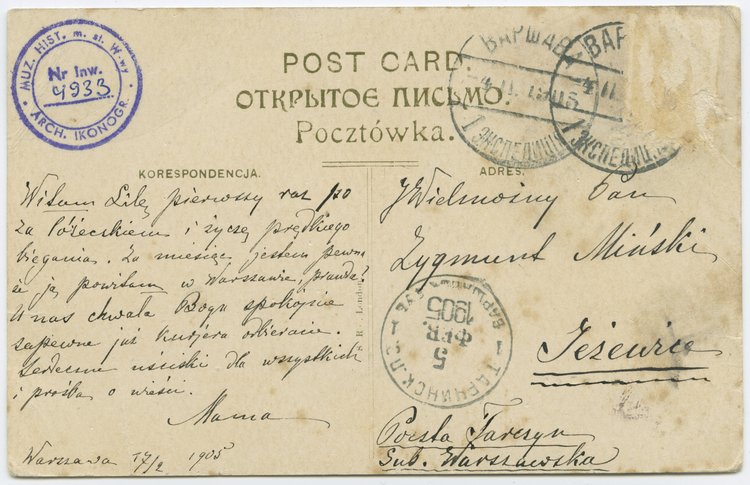 MUZ. HIST. m. st. W-wy
Nr Inw.
4933
ARCH. IKONOGR.
POST CARD.
ОТКРЫТОЕ ПИСЬМО.
Pocztówka.
ВАРШАВ
4 II 1905
1 ЭКСПЕДИЦ
ВАР
4 II
1 ЭКСПЕДИЦ
KORESPONDENCJA.
Witam Lilę pierwszy raz po
za łóżeczkiem i życzę prędkiego
biegania. Za miesiąc jestem pewna
że ją powitam w Warszawie, prawda?
U nas chwała Bogu spokojnie
zapewne już kurjera odbieracie.
Serdeczne uściski dla wszystkich
i prośba o wieści.
Mama
Warszawa 17/2 1905
R. London
ADRES.
JWielmożny Pan
Zygmunt Miński
Jeżewice
Poczta Tarczyn
Gub. Warszawska
5
ФЕВ.
1905